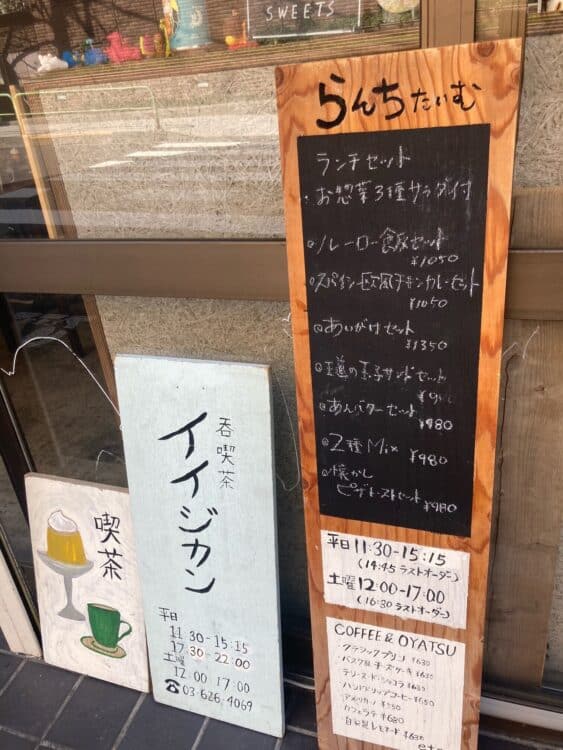 SWEETS
らんちたいむ
ランチセット
・お惣菜3種サラダ付
ルーロー飯セット
¥1050
スパイシー欧風チキンカレーセット
¥1050
あいがけセット
¥1350
王道の玉子サンドセット
あんバターセット
¥980
2種Mix ¥980
懐かし
ピザトーストセット ¥980
平日 11:30-15:15
(14:45 ラストオーダー)
土曜 12:00-17:00
(16:30 ラストオーダー)
COFFEE & OYATSU
クラシックプリン ¥630
バスク風チーズケーキ ¥630
テリーヌ・ド・ショコラ ¥630
ハンドドリップコーヒー ¥650
アメリカーノ ¥550
カフェラテ ¥680
自家製レモネード ¥630
etc
吞喫茶
イイジカン
平日
11:30-15:15
17:30-22:00
土曜
12:00 17:00
☎03-626-4069
喫茶